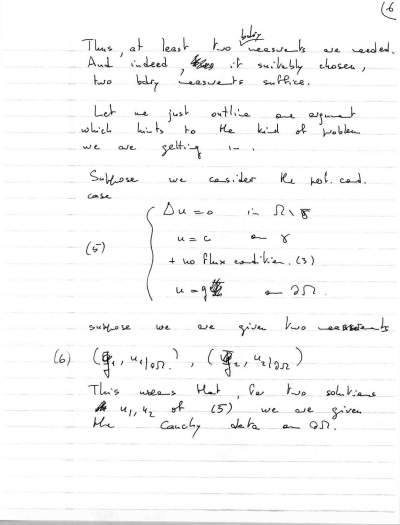 (6
bdry
Thus, at least two measments are needed.
And indeed, if suitably chosen,
two bdry measments suffice.
Let me just outline one argument
which hints to the kind of problem
we are getting in.
Suppose we consider the perf. cond.
case
Δu = 0 in Ω\γ
(5) u = c on γ
+ no flux condition (3)
u = g on ∂Ω.
suppose we are given two measments
(6) (g₁, u₁|∂Ω), (g₂, u₂|∂Ω)
This means that, for two solutions
u₁, u₂ of (5) we are given
the Cauchy data on ∂Ω.